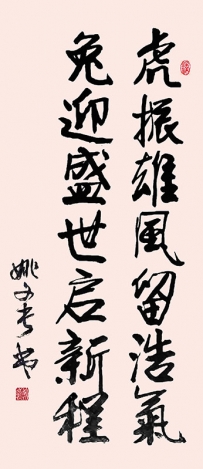 虎振雄风留浩氣
兔迎盛世启新程
姚文长书